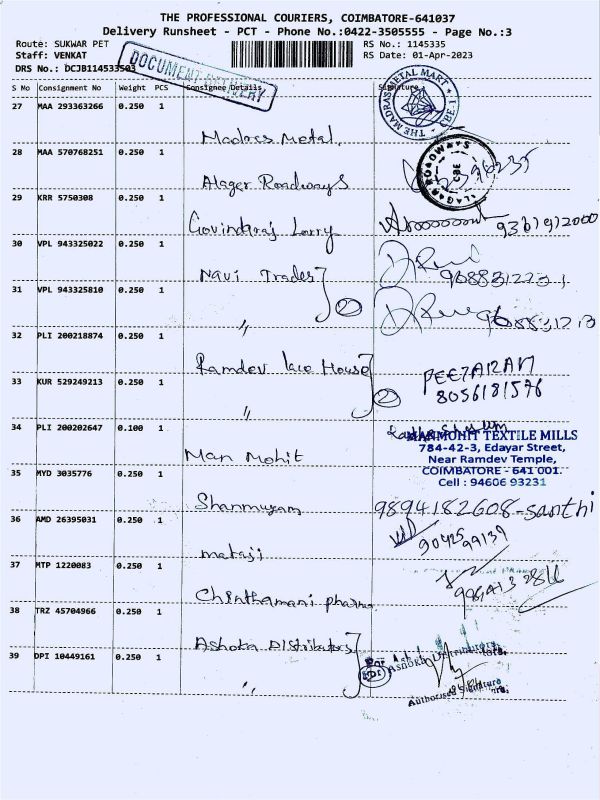 THE PROFESSIONAL COURIERS, COIMBATORE-641037
Delivery Runsheet - PCT - Phone No.:0422-3505555 - Page No.:3
Route: SUKWAR PET
RS No.: 1145335
Staff: VENKAT
RS Date: 01-Apr-2023
DRS No.: DCJB114533503
DOCUMENT DELIVERY
S No Consignment No Weight PCS Consignee Details Signature
THE MADRAS METAL MART CBE-1
27 MAA 293363266 0.250 1
Madras Metal.
28 MAA 570768251 0.250 1
ALAGAR ROADWAYS CBE
Alager Roadways
29 KRR 5750308 0.250 1
Govindraj Lorry
9361912000
30 VPL 943325022 0.250 1
Navi Trades
9688312231
31 VPL 943325810 0.250 1
2
〃
32 PLI 200218874 0.250 1
Ramdev lace House
33 KUR 529249213 0.250 1
8056181576
2
〃
34 PLI 200202647 0.100 1
MANMOHIT TEXTILE MILLS
784-42-3, Edayar Street,
Near Ramdev Temple,
COIMBATORE - 641 001.
Cell : 94606 93231
Man Mohit
35 MYD 3035776 0.250 1
Shanmugam
9894182608-santhi
36 AMD 26395031 0.250 1
mataji
90425 99139
37 MTP 1220083 0.250 1
Chinthamani pharma
38 TRZ 45704966 0.250 1
Ashoka Distributors
39 DPI 10449161 0.250 1
For Ashoka Distributors
〃
Authorised Signature